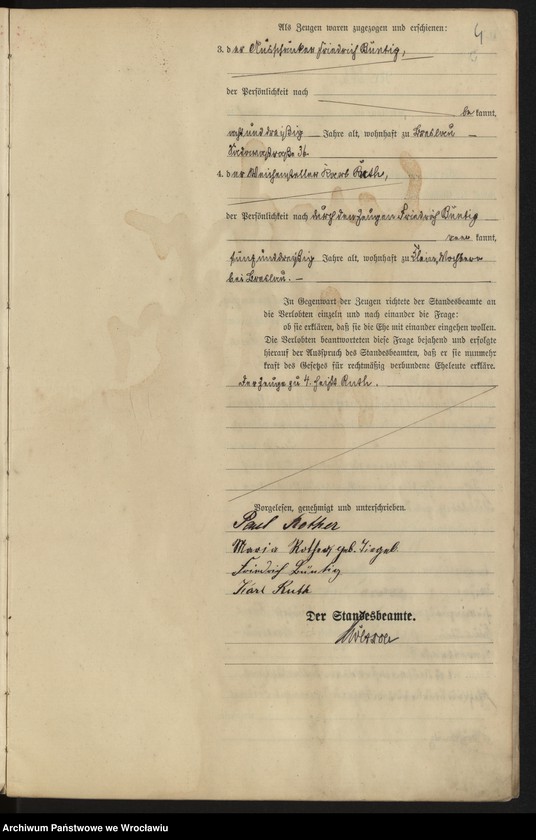 4
Als Zeugen waren zugezogen und erschienen:
3. der Ausschänker Friedrich Büntig,
der Persönlichkeit nach
be kannt,
achtunddreißig Jahre alt, wohnhaft zu Breslau
36
4. der Weichensteller Karl Ruth,
der Persönlichkeit nach durch den Zeugen Friedrich Büntig
aner kannt,
fünfunddreißig Jahre alt, wohnhaft zu Klein Mochbern
bei Breslau.
In Gegenwart der Zeugen richtete der Standesbeamte an
die Verlobten einzeln und nach einander die Frage:
ob sie erklären, daß sie die Ehe mit einander eingehen wollen.
Die Verlobten beantworteten diese Frage bejahend und erfolgte
hierauf der Ausspruch des Standesbeamten, daß er sie nunmehr
kraft des Gesetzes für rechtmäßig verbundene Eheleute erkläre.
Der Zeuge zu 4 heißt Ruth.
Vorgelesen, genehmigt und unterschrieben.
Paul Rother
Maria Rother geb. Ziegel.
Friedrich Büntig
Karl Ruth
Der Standesbeamte.
Archiwum Państwowe we Wrocławiu